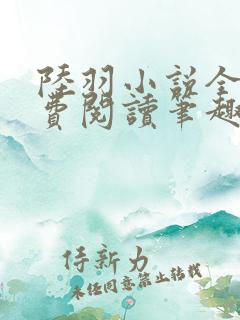 陸羽小說全
費閱讀筆趣
侍新力
未经同意禁止转载